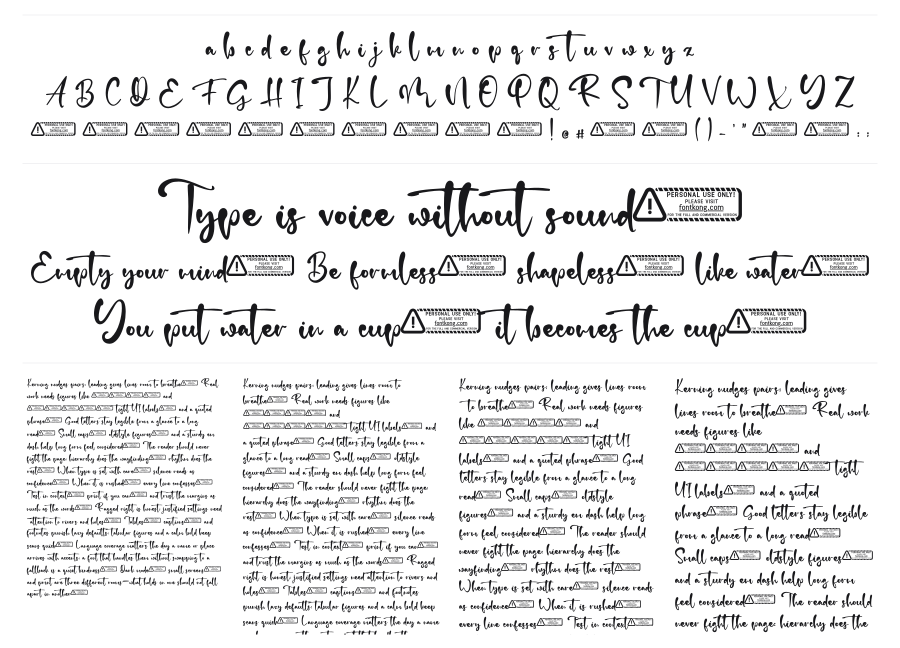 a b c d e f g h i j k l m n o p q r s t u v w x y z
A B C D E F G H I J K L M N O P Q R S T U V W X Y Z
! @ # ( ) - ' " : ;
Type is voice without sound PERSONAL USE ONLY! PLEASE VISIT fontkong.com FOR THE FULL AND COMMERCIAL VERSION
Empty your mind PERSONAL USE ONLY! PLEASE VISIT fontkong.com Be formless PERSONAL USE ONLY! PLEASE VISIT fontkong.com shapeless PERSONAL USE ONLY! PLEASE VISIT fontkong.com like water PERSONAL USE ONLY! PLEASE VISIT fontkong.com
You put water in a cup PERSONAL USE ONLY! PLEASE VISIT fontkong.com it becomes the cup PERSONAL USE ONLY! PLEASE VISIT fontkong.com
Kerning nudges pairs: leading gives lines room to breathe Real
work needs figures like and
tight UI labels and a quoted
phrase Good letters stay legible from a glance to a long
read Small caps oldstyle figures and a sturdy en
dash help long form feel considered The reader should never
fight the page: hierarchy does the wayfinding rhythm does the
rest When type is set with care silence reads as
confidence When it is rushed every line confesses
Test in context print if you can and trust the margins as
much as the words Ragged right is honest justified settings need
attention to rivers and holes Tables captions and
footnotes punish lazy defaults tabular figures and a calm bold keep
scans quick Language coverage matters the day a name or place
arrives with accents: a font that handles them without swapping to a
fallback is a quiet kindness Dark mode small screens
and print are three different rooms—what holds in one should not fall
apart in another
Kerning nudges pairs: leading gives lines room to
breathe Real work needs figures like
and
tight UI labels and
a quoted phrase Good letters stay legible from a
glance to a long read Small caps oldstyle
figures and a sturdy en dash help long form feel
considered The reader should never fight the page:
hierarchy does the wayfinding rhythm does the
rest When type is set with care silence reads
as confidence When it is rushed every line
confesses Test in context print if you can
and trust the margins as much as the words Ragged
right is honest justified settings need attention to rivers and
holes Tables captions and footnotes
punish lazy defaults tabular figures and a calm bold keep
scans quick Language coverage matters the day a name
Kerning nudges pairs: leading gives lines room
to breathe Real work needs figures
like and
tight UI
labels and a quoted phrase Good
letters stay legible from a glance to a long
read Small caps oldstyle
figures and a sturdy en dash help long
form feel considered The reader should
never fight the page: hierarchy does the
wayfinding rhythm does the rest
When type is set with care silence reads
as confidence When it is rushed
every line confesses Test in context
Kerning nudges pairs: leading gives
lines room to breathe Real work
needs figures like
and
tight
UI labels and a quoted
phrase Good letters stay legible
from a glance to a long read
Small caps oldstyle figures
and a sturdy en dash help long form
feel considered The reader should
never fight the page: hierarchy does the